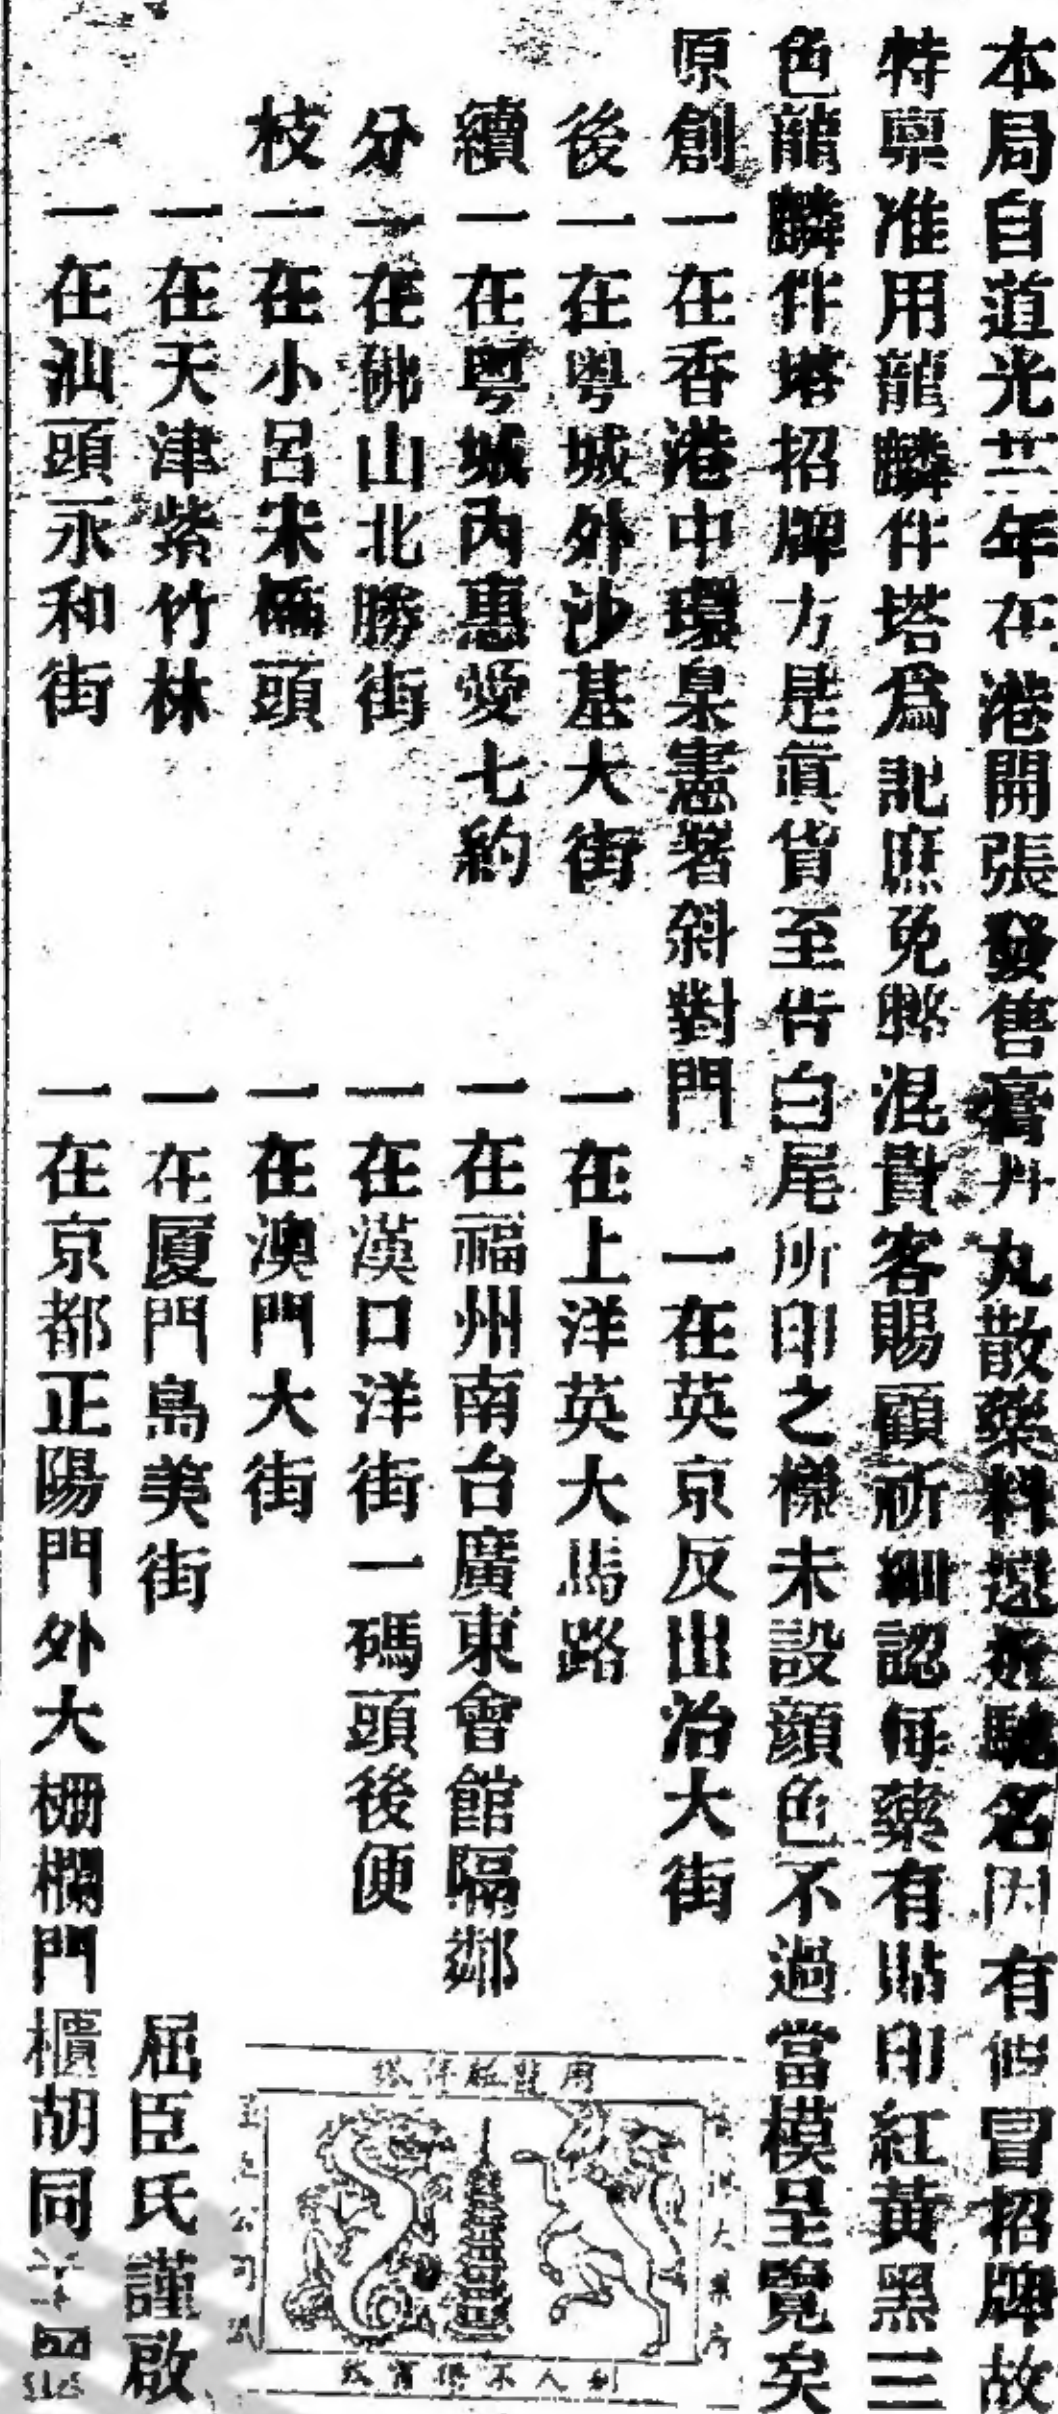 本局自道光廿一年在港開張發售膏丹丸散藥料遠近馳名因有假冒招牌故
特禀准用龍麟伴塔爲記庶免弊混貴客賜顧祈細認每藥有貼印紅黃黑三
色龍麟伴塔招牌方是眞貨至告白尾所印之樣未設顏色不過當模呈覽矣
原創 一在香港中環臬憲署斜對門 一在英京反出冶大街
後 一在粤城外沙基大街 一在上洋英大馬路
續 一在粤城內惠愛七約 一在福州南台廣東會館隔鄰
分 一在佛山北勝街 一在漢口洋街一碼頭後便
枝 一在小呂宋橋頭 一在澳門大街
一在天津紫竹林 一在厦門島美街 屈臣氏謹啟
一在汕頭永和街 一在京都正陽門外大柵欄門櫃胡同
用龍麟伴塔
大藥房
公司